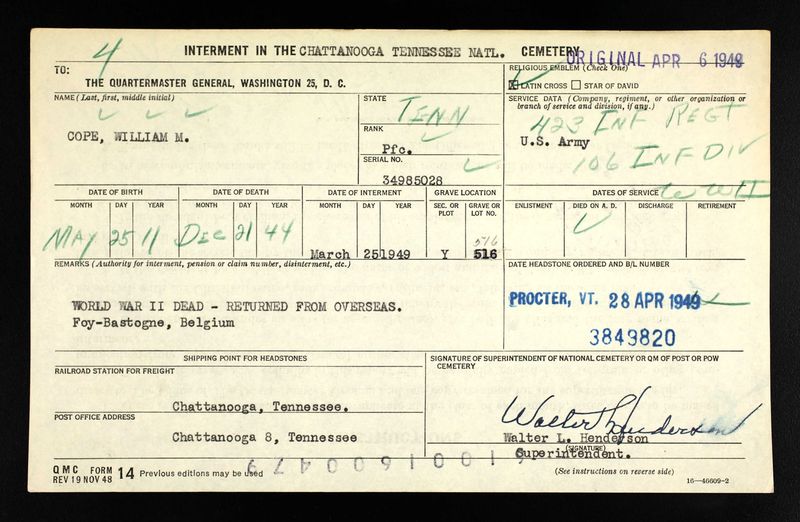 4
INTERMENT IN THE CHATTANOOGA TENNESSEE NATL. CEMETERY
ORIGINAL APR 6 1949
TO:
THE QUARTERMASTER GENERAL, WASHINGTON 25, D. C.
RELIGIOUS EMBLEM (Check One)
X LATIN CROSS STAR OF DAVID
NAME (Last, first, middle initial)
COPE, WILLIAM M.
STATE
TENN
RANK
Pfc.
SERIAL NO.
34985028
SERVICE DATA (Company, regiment, or other organization or branch of service and division, if any.)
423 INF REGT
U.S. Army
106 INF DIV
DATE OF BIRTH
MONTH DAY YEAR
MAY 25 11
DATE OF DEATH
MONTH DAY YEAR
DEC 21 44
DATE OF INTERMENT
MONTH DAY YEAR
March 25 1949
GRAVE LOCATION
SEC. OR PLOT
GRAVE OR LOT NO.
516
Y 516
DATES OF SERVICE WWII
ENLISTMENT DIED ON A. D. DISCHARGE RETIREMENT
REMARKS (Authority for interment, pension or claim number, disinterment, etc.)
WORLD WAR II DEAD - RETURNED FROM OVERSEAS.
Foy-Bastogne, Belgium
DATE HEADSTONE ORDERED AND B/L NUMBER
PROCTER, VT. 28 APR 1949
3849820
SHIPPING POINT FOR HEADSTONES
RAILROAD STATION FOR FREIGHT
Chattanooga, Tennessee.
POST OFFICE ADDRESS
Chattanooga 8, Tennessee
SIGNATURE OF SUPERINTENDENT OF NATIONAL CEMETERY OR QM OF POST OR POW CEMETERY
Walter L Henderson
Walter L. Henderson
(SIGNATURE)
Superintendent.
QMC FORM 14 Previous editions may be used
REV 19 NOV 48
(See instructions on reverse side)
16—46609-2